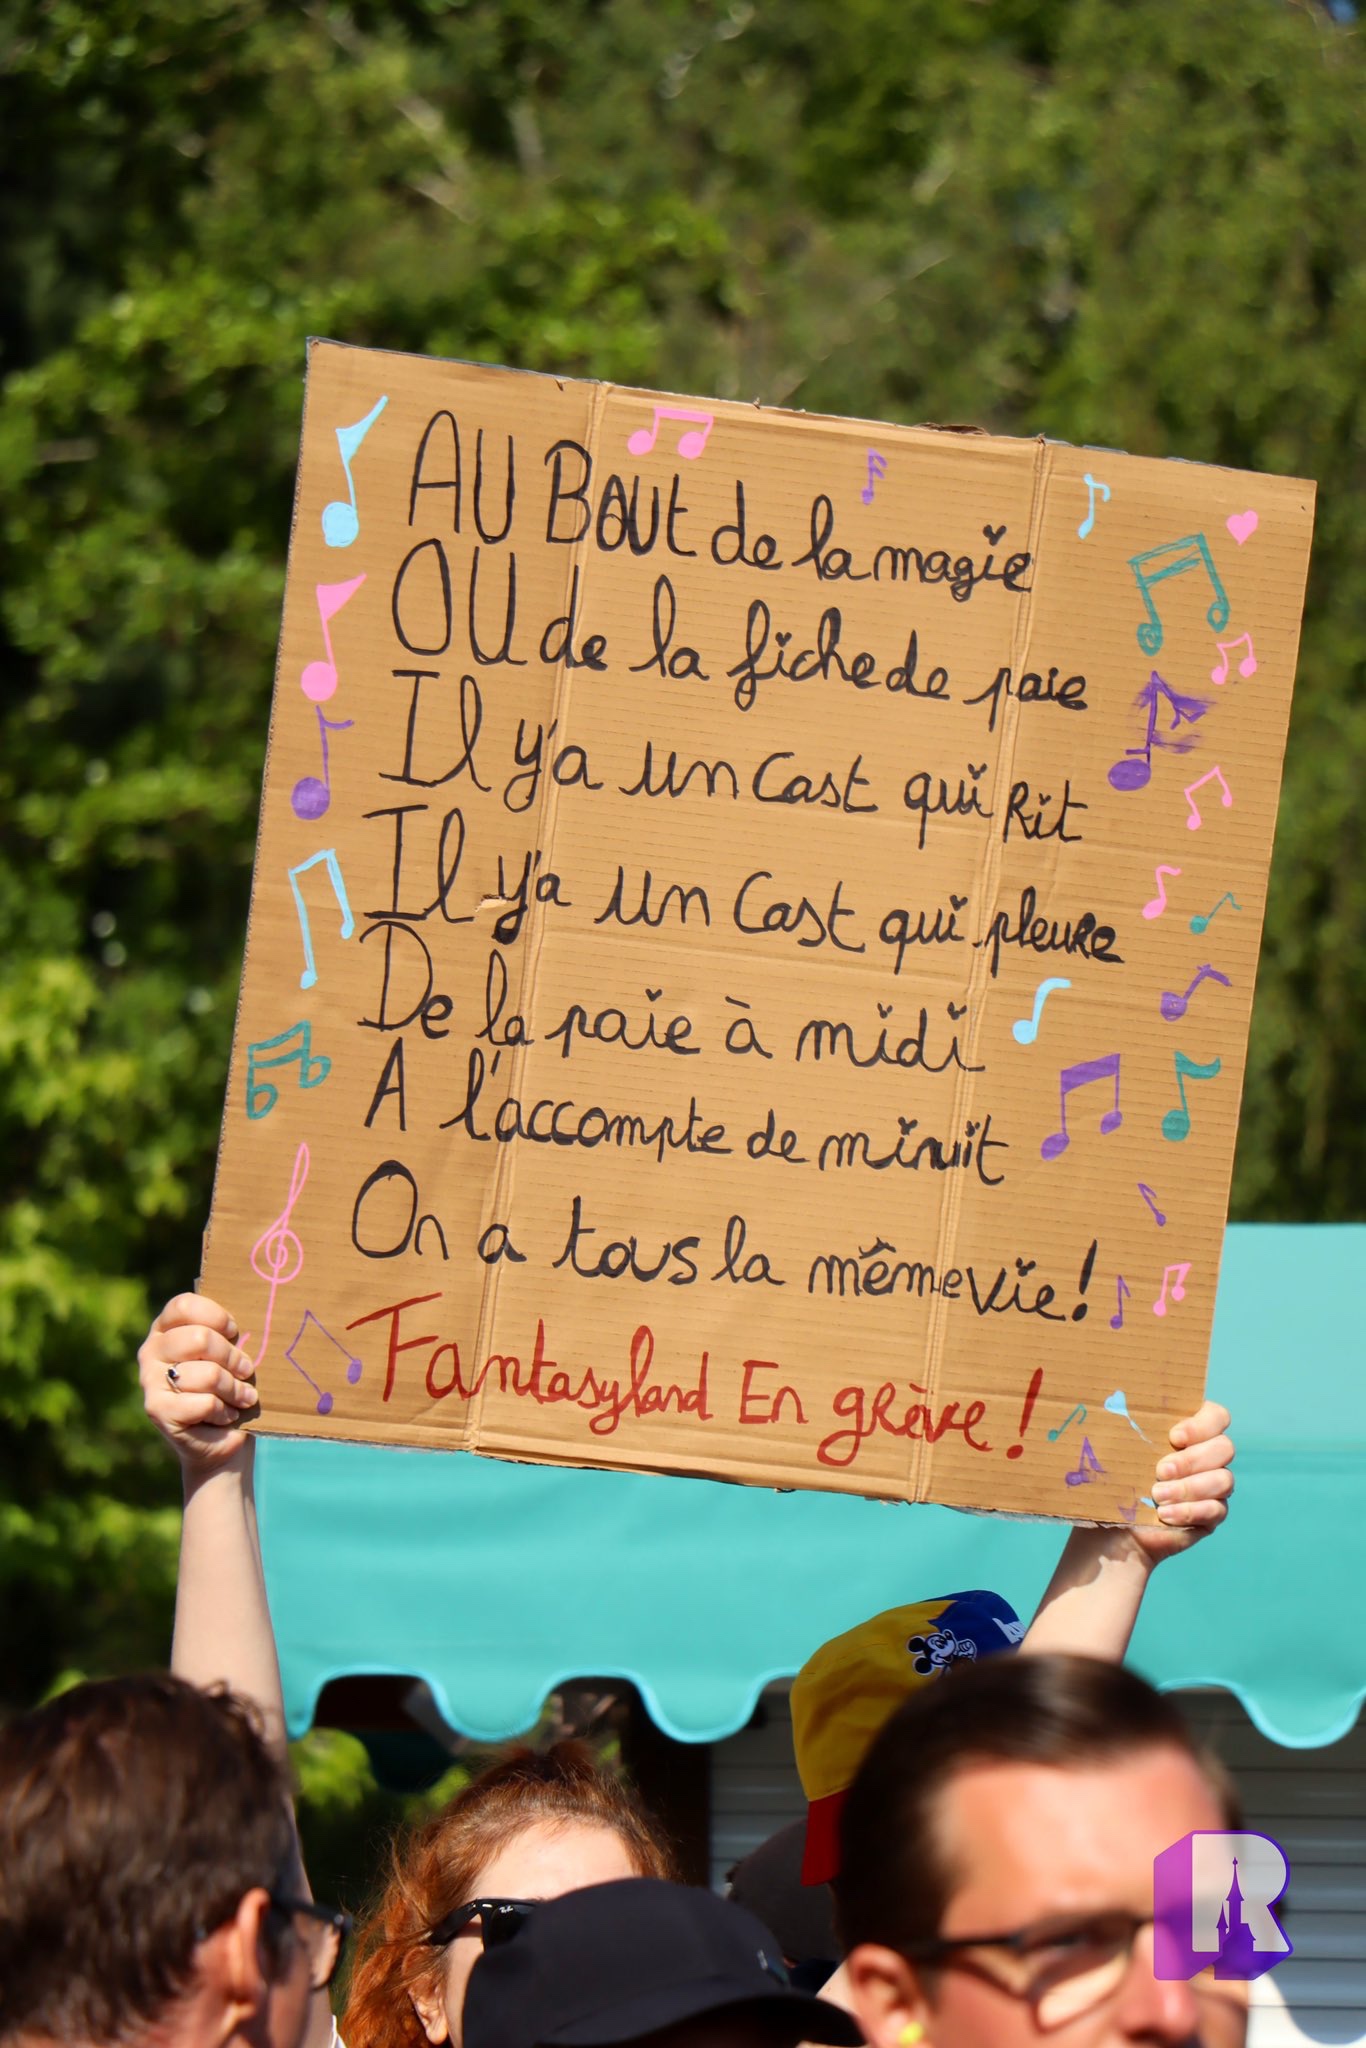 AU BOUt de la magie
OU de la fiche de paie
Il y'a un Cast qui Rit
Il y'a un Cast qui pleure
De la paie à midi
A l'accompte de minuit
On a tous la même vie !
Fantasyland En grève !
R